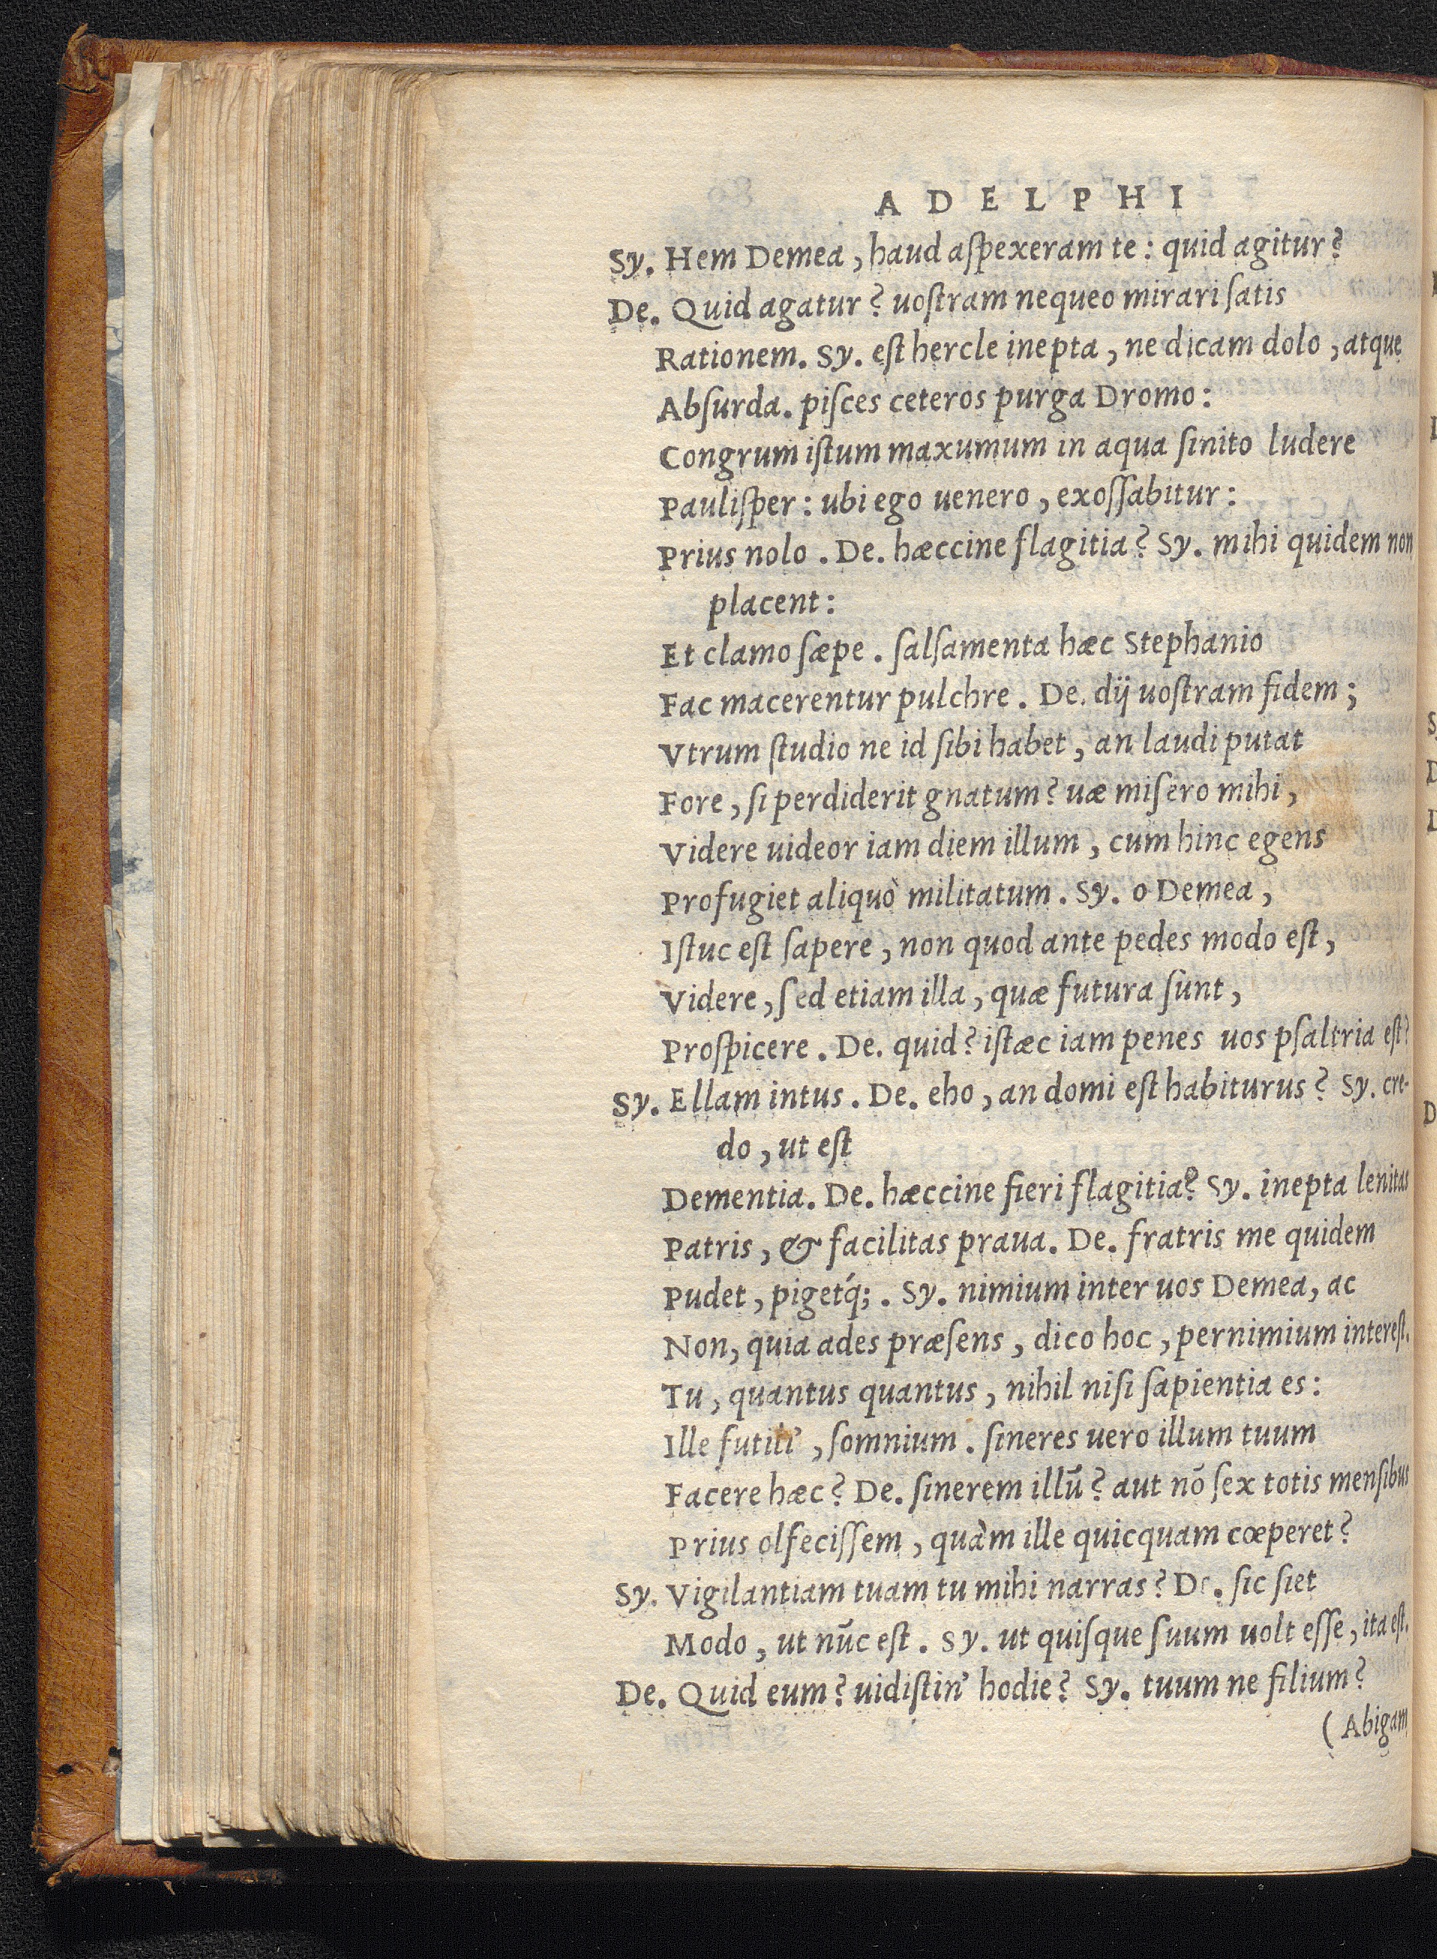 ADELPHI
Sy. Hem Demea, haud aſpexeram te: quid agitur?
De. Quid agatur? uoſtram nequeo mirari ſatis
Rationem. Sy. eſt hercle inepta, ne dicam dolo, atque
Abſurda. piſces ceteros purga Dromo:
Congrum iſtum maxumum in aqua ſinito ludere
Pauliſper: ubi ego uenero, exoſſabitur:
Prius nolo. De. hæccine flagitia? Sy. mihi quidem non
placent:
Et clamo ſæpe. ſalſamenta hæc Stephanio
Fac macerentur pulchre. De. dij uoſtram fidem;
Vtrum ſtudio ne id ſibi habet, an laudi putat
Fore, ſi perdiderit gnatum? uæ miſero mihi,
Videre uideor iam diem illum, cum hinc egens
Profugiet aliquò militatum. Sy. o Demea,
Iſtuc eſt ſapere, non quod ante pedes modo eſt,
Videre, ſed etiam illa, quæ futura ſunt,
Proſpicere. De. quid? iſtæc iam penes uos pſaltria eſt?
Sy. Ellam intus. De. eho, an domi eſt habiturus? Sy. cre-
do, ut eſt
Dementia. De. hæccine fieri flagitia? Sy. inepta lenitas
Patris, & facilitas praua. De. fratris me quidem
Pudet, pigetq́;. Sy. nimium inter uos Demea, ac
Non, quia ades præſens, dico hoc, pernimium intereſt.
Tu, quantus quantus, nihil niſi ſapientia es:
Ille futili', ſomnium. ſineres uero illum tuum
Facere hæc? De. ſinerem illū? aut nō ſex totis menſibus
Prius olfeciſſem, quàm ille quicquam cœperet?
Sy. Vigilantiam tuam tu mihi narras? De. ſic ſiet
Modo, ut nūc eſt. Sy. ut quiſque ſuum uolt eſſe, ita eſt.
De. Quid eum? uidiſtin' hodie? Sy. tuum ne filium?
(Abigam